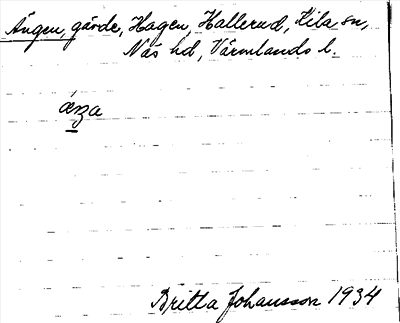 Ängen, gärde, Hagen, Hallerud, Kila sn,
Näs hd, Värmlands l.
Britta Johansson 1934